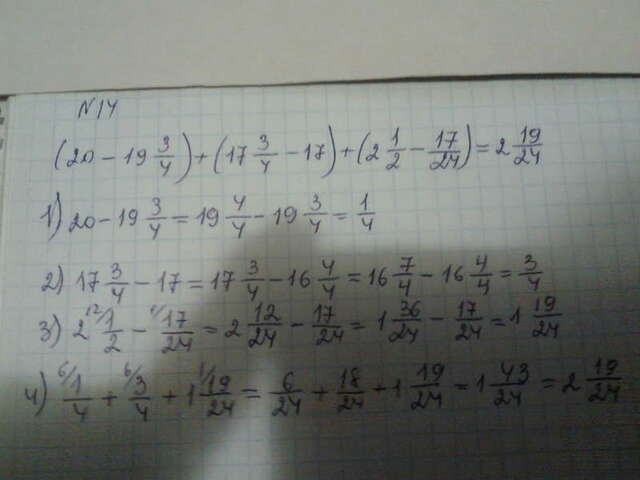 N14
(20 - 19 3/4) + (17 3/4 - 17) + (2 1/2 - 17/24) = 2 19/24
1) 20 - 19 3/4 = 19 4/4 - 19 3/4 = 1/4
2) 17 3/4 - 17 = 17 3/4 - 16 4/4 = 16 7/4 - 16 4/4 = 3/4
3) 2 12/ 1/2 - 1/ 17/24 = 2 12/24 - 17/24 = 1 36/24 - 17/24 = 1 19/24
4) 6/ 1/4 + 6/ 3/4 + 1 1/ 19/24 = 6/24 + 18/24 + 1 19/24 = 1 43/24 = 2 19/24